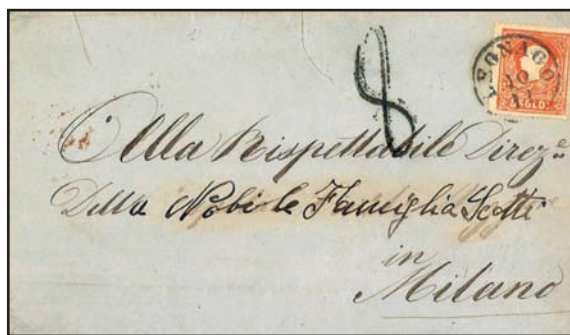 8
LEGNAGO
10
11
5 SOLDI
Alla Rispettabile Direz.e
Della Nobile Famiglia Scotti
in
Milano